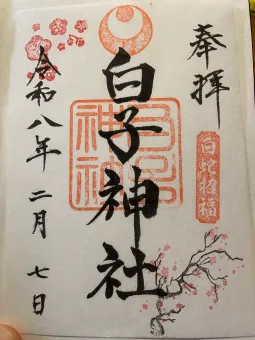 奉拝
白蛇招福
白子神社
白子神社
令和八年二月七日